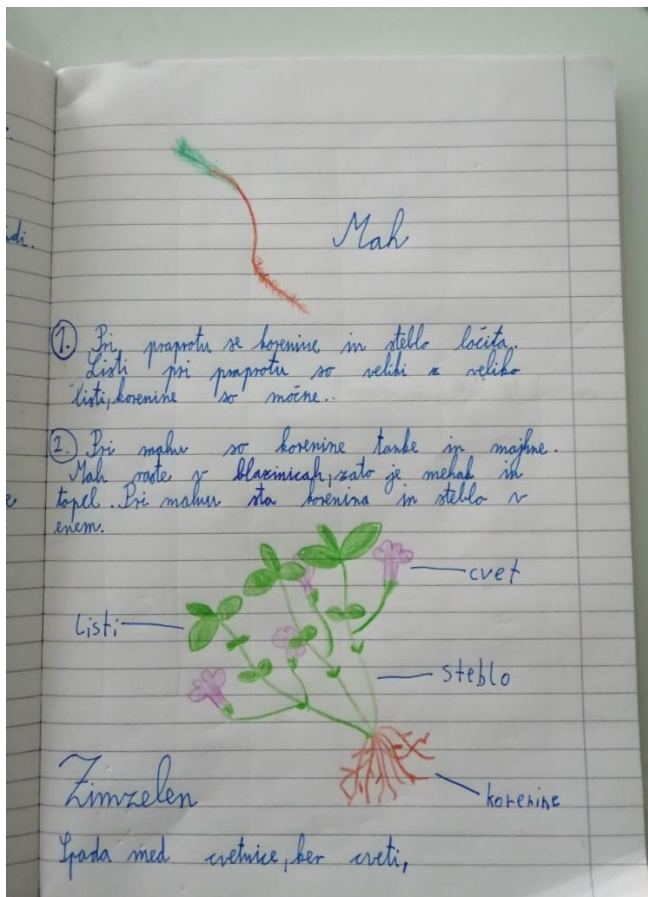 di.
Mah
1. Pri praprotu se korenine in steblo ločita.
Listi pri praprotu so veliki z veliko
listi, korenine so močne..
2. Pri mahu so korenine tanke in majhne.
Mah raste v blazinicah, zato je mehak in
topel. Pri mahu sta korenina in steblo v
enem.
cvet
Listi
steblo
korenine
Zimzelen
Spada med cvetnice, ker cveti,